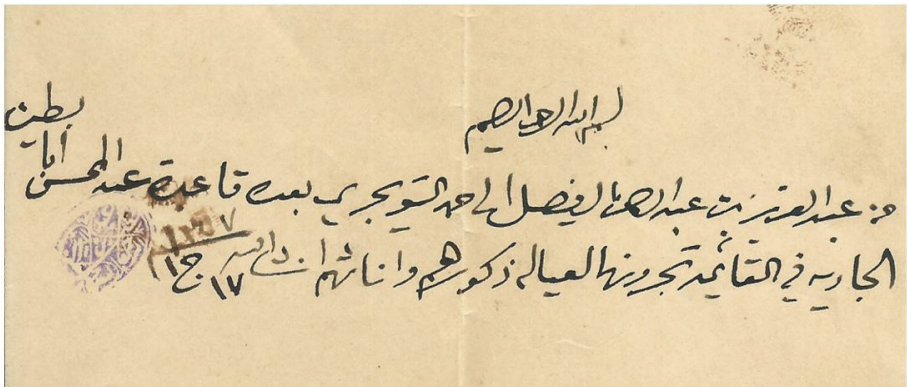 بسم الله الرحمن الرحيم
من عبد العزيز بن عبد الرحمن الفيصل الى حمد التويجري بعده قاعدة عبد المحسن ابا بطين
الجاريه في القائمة تجرونها لعياله ذكورهم واناثهم ان شاء الله
١٧ ج ١